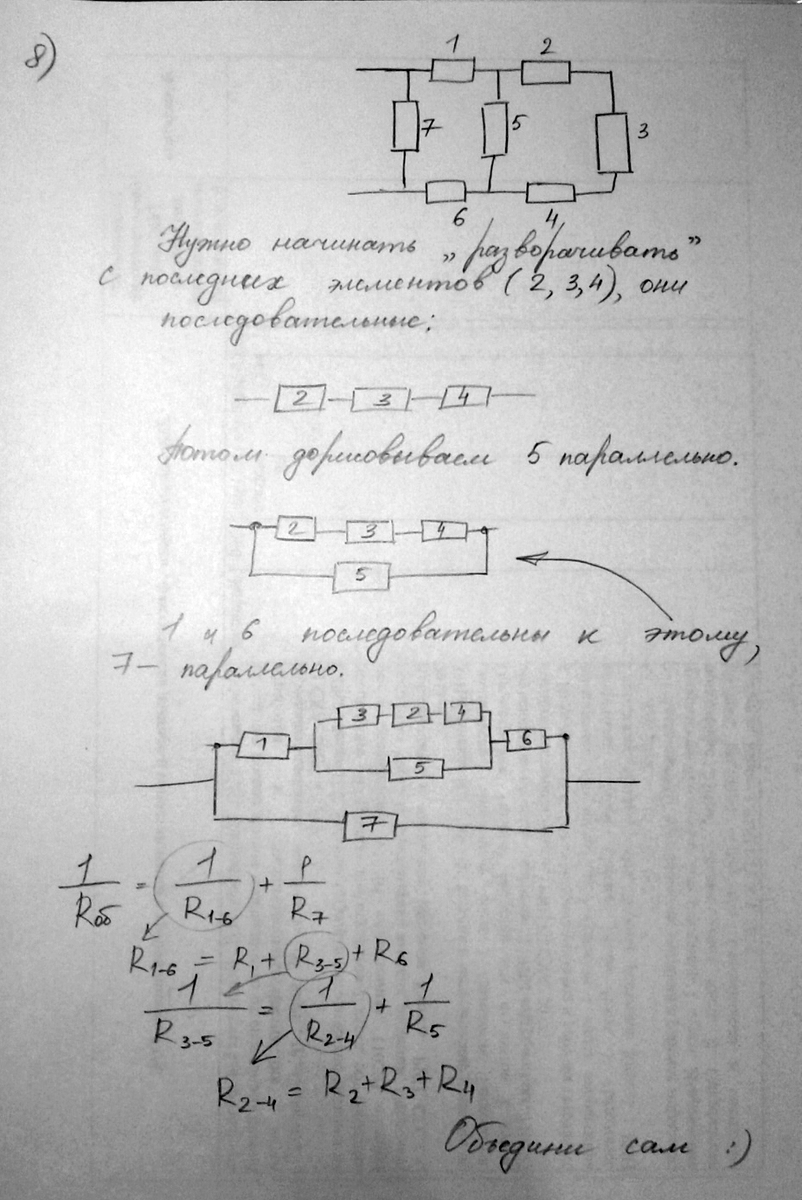 8)
1 2
7 5 3
6 4
Нужно начинать „разворачивать”
с последних элементов (2, 3, 4), они
последовательные:
2 3 4
Потом дорисовываем 5 параллельно.
2 3 4
5
1 и 6 последовательны к этому,
7 – параллельно.
3 2 4
1 6
5
7
1/Rоб = 1/R1-6 + 1/R7
R1-6 = R1 + R3-5 + R6
1/R3-5 = 1/R2-4 + 1/R5
R2-4 = R2 + R3 + R4
Объедини сам :)